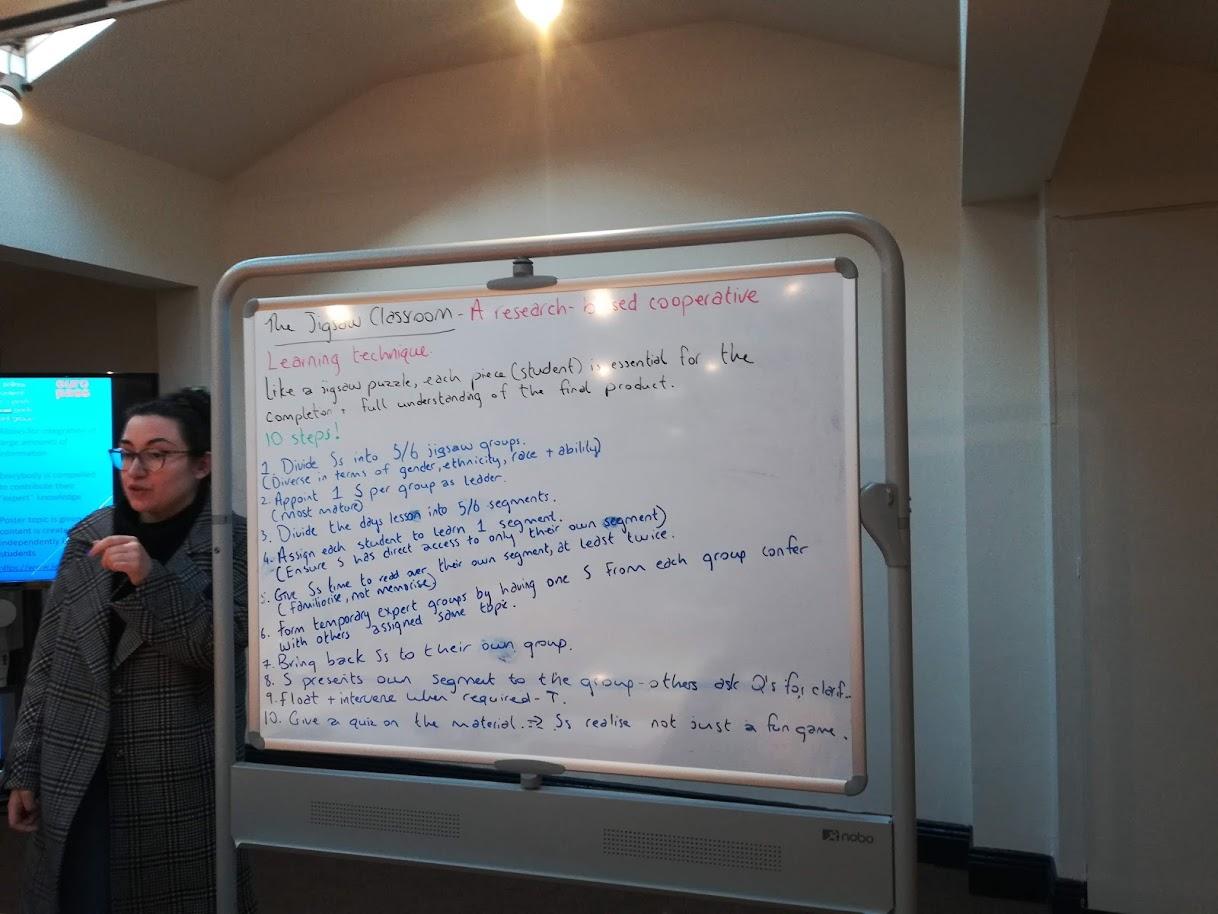 The Jigsaw Classroom - A research-based cooperative
Learning technique.
Like a jigsaw puzzle, each piece (student) is essential for the
completion + full understanding of the final product.
10 steps!
1. Divide Ss into 5/6 jigsaw groups.
(Diverse in terms of gender, ethnicity, race + ability)
2. Appoint 1 S per group as leader.
(most mature)
3. Divide the days lesson into 5/6 segments.
4. Assign each student to learn 1 segment.
(Ensure S has direct access to only their own segment)
5. Give Ss time to read over their own segment, at least twice.
(familiarise, not memorise)
6. Form temporary expert groups by having one S from each group confer
with others assigned same topic.
7. Bring back Ss to their own group.
8. S presents own segment to the group - others ask Q's for clarif..
9. Float + intervene when required - T.
10. Give a quiz on the material. => Ss realise not just a fun game.
nobo
euro
pass
Allows for integration of
large amounts of
information
Everybody is compelled
to contribute their
"expert" knowledge
Poster topic is
content is
independently
students